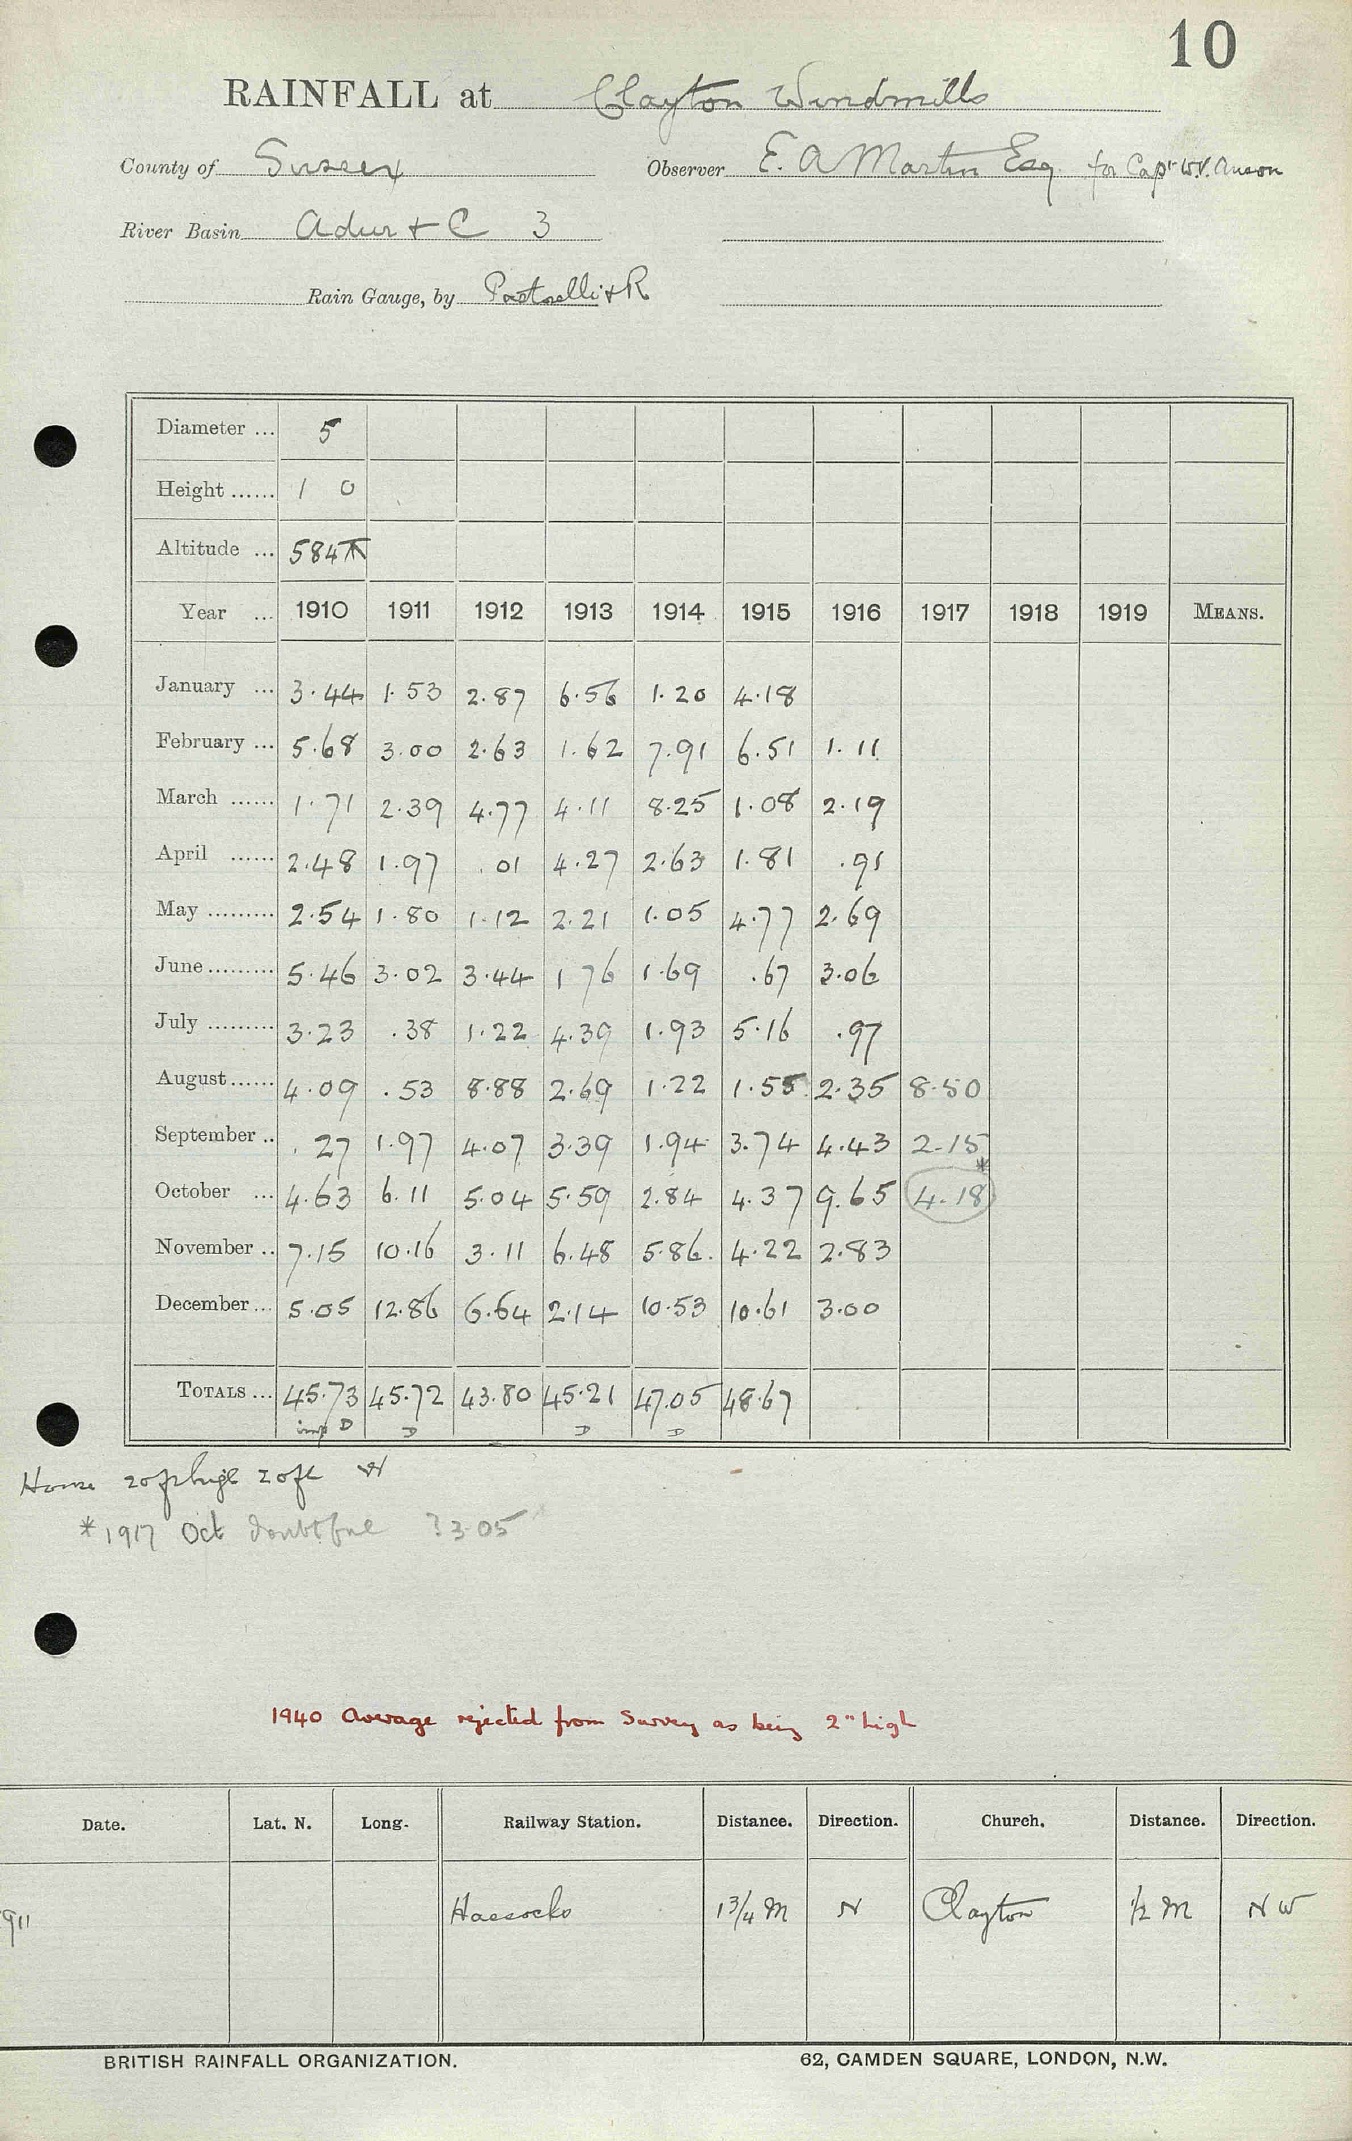 10
RAINFALL at Clayton Windmills
County of Sussex Observer E. A Martin Esq. for Capt W.V. Anson
River Basin Adur + C 3
Rain Gauge, by Pastorelli + R
Diameter ... 5
Height ...... 1 0
Altitude ... 584
Year ... 1910 1911 1912 1913 1914 1915 1916 1917 1918 1919 MEANS.
January ... 3.44 1.53 2.87 6.56 1.20 4.18
February ... 5.68 3.00 2.63 1.62 7.91 6.51 1.11
March ...... 1.71 2.39 4.77 4.11 8.25 1.08 2.19
April ...... 2.48 1.97 .01 4.27 2.63 1.81 .91
May ......... 2.54 1.80 1.12 2.21 1.05 4.77 2.69
June ......... 5.46 3.02 3.44 1 76 1.69 .67 3.06
July ......... 3.23 .38 1.22 4.39 1.93 5.16 .97
August ...... 4.09 .53 8.88 2.69 1.22 1.55 2.35 8.50
September .. .27 1.97 4.07 3.39 1.94 3.74 4.43 2.15
October ... 4.63 6.11 5.04 5.59 2.84 4.37 9.65 4.18 *
November .. 7.15 10.16 3.11 6.48 5.86 4.22 2.83
December ... 5.05 12.86 6.64 2.14 10.53 10.61 3.00
TOTALS ... 45.73 45.72 43.80 45.21 47.05 48.67
imp D D D D
House 20ft high 20ft W
* 1917 Oct doubtful ? 3.05
1940 Average rejected from Survey as being 2" high
Date. Lat. N. Long. Railway Station. Distance. Direction. Church. Distance. Direction.
911 Hassocks 1 3/4 M N Clayton 1/2 M N W
BRITISH RAINFALL ORGANIZATION. 62, CAMDEN SQUARE, LONDON, N.W.